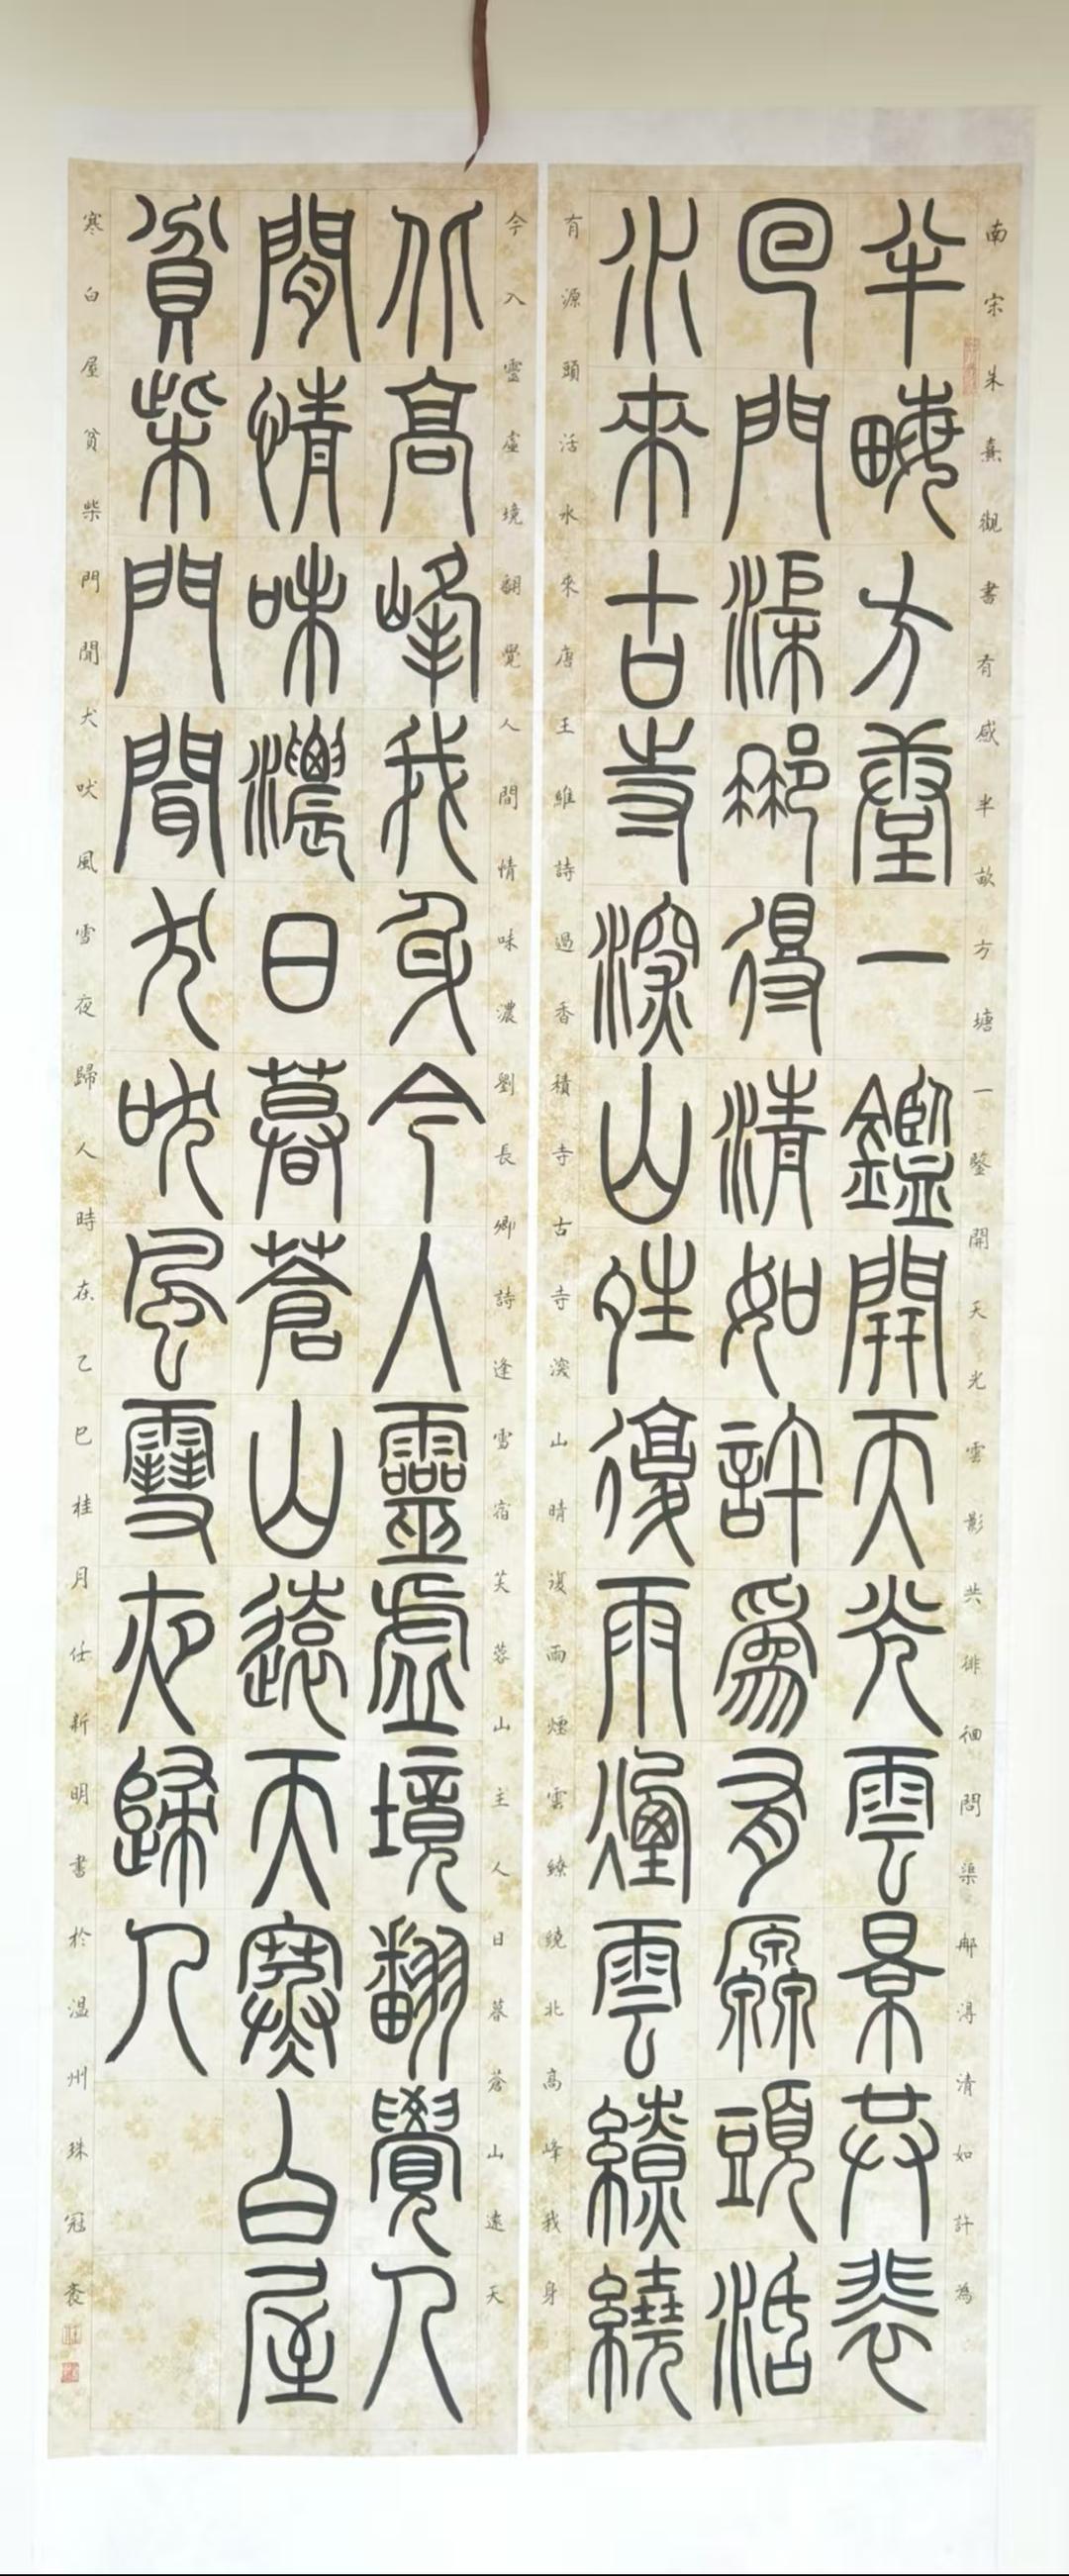 南宋朱熹觀書有感半畝方塘一鑒開天光雲影共徘徊問渠郍淂清如許為
半畮方塘一鑑開天光雲景共裴
回門渠郍得清如許爲有厵頭活
水來古寺深山夝復雨煙雲繚繞
有源頭活水來唐王維詩過香積寺古寺深山晴復雨煙雲繚繞北高峰我身
今入靈虛境翻覺人間情味濃劉長卿詩逢雪宿芙蓉山主人日暮蒼山遠天
北高峰我身今人靈虛境翻覺人
間情味濃日暮蒼山遠天寒白屋
貧柴門聞犬吠風雪夜歸人
寒白屋貧柴門聞犬吠風雪夜歸人時在乙巳桂月仕新明書於温州珠冠